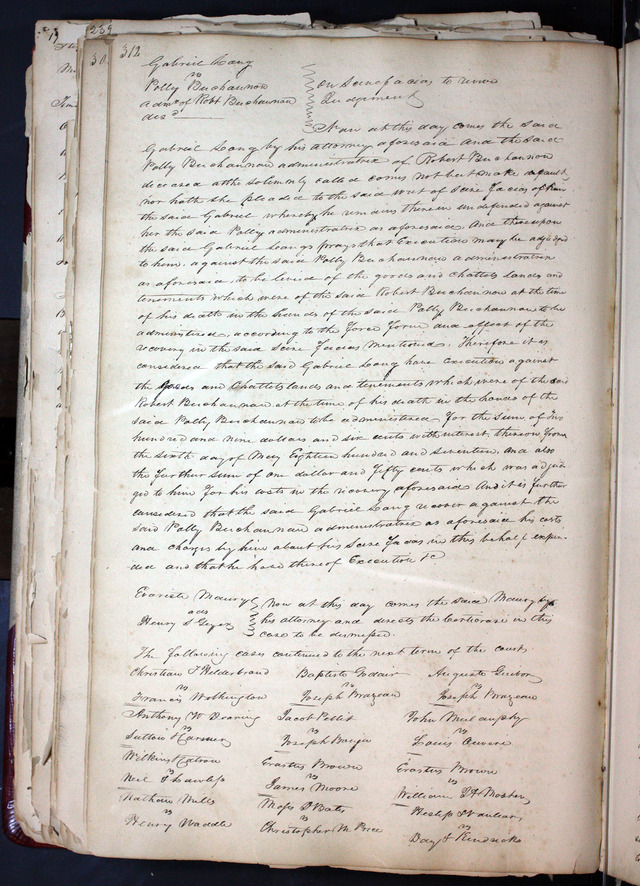 239
312
Gabriel Long
vs
Polly Buchannon
admx of Robt Buchannon
decd
on Scire facias to revive
Judgement
Now at this day comes the said
Gabriel Long by his attorney aforesaid and the said
Polly Buchannon administratrix of Robert Buchannon
deceased altho solemnly called comes not but makes default
nor hath she pleaded to the said writ of Scire facias of him
the said Gabriel whereby he remains therein undefended against
her the said Polly administratrix as aforesaid. And thereupon
the said Gabriel Long prays that Execution may be adjudged
to him, against the said Polly Buchannon administratrix
as aforesaid, to be levied of the goods and Chattels lands and
tenements which were of the said Robert Buchannon at the time
of his death in the hands of the said Polly Buchannon to be
administered, according to the force form and effect of the
recovery in the said Scire facias mentioned. Therefore it is
considered that the said Gabriel Long have Execution against
the goods and Chattels lands and tenements which were of the said
Robert Buchannon at the time of his death in the hands of the
said Polly Buchannon to be administered for the sum of two
hundred and nine dollars and six cents with interest thereon from
the sixth day of May Eighteen hundred and seventeen and also
the further sum of one dollar and fifty cents which was adjud
ged to him for his costs in the recovery aforesaid And it is further
considered that the said Gabriel Long recover against the
said Polly Buchannan administratrix as aforesaid his costs
and charges by him about his Scire facias in this behalf expen
ded and that he have thereof Execution &c
Evariste Maury
ads
Henry S Geyer
Now at this day comes the said Maury by
his attorney and directs the Certiorari in this
case to be dismissed.
The following cases continued to the next term of the court
Christian F Hilderbrand Baptiste Godair Auguste Guibor
vs vs vs
Francis Wethington Joseph Brazeau Joseph Brazeau
Anthony W Dearing Jacob Pettit John Mulanphy
vs vs vs
Sutton & Carmer Joseph Bougu Louis
Wilkins Catron Erastus Brown Erastus Brown
vs vs vs
Neil & Lawless James Moore William D H Mosher
Nathan Mills Moss & Bates Heslep &
vs vs vs
Henry Waddle Christopher M Price Day & Kendricks